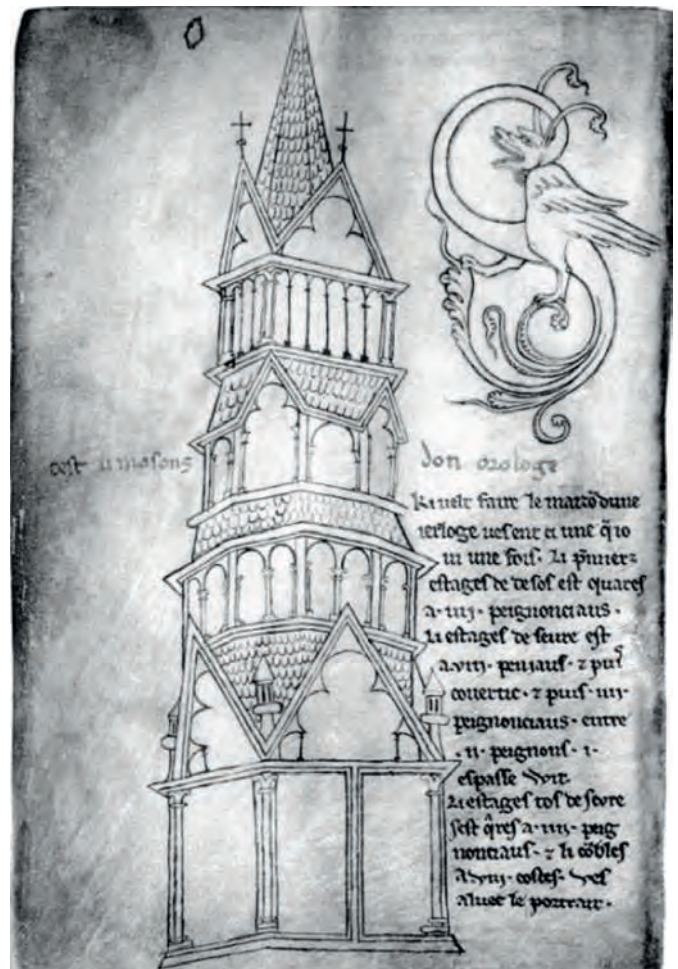 cest li masons don orologe
Ki velt faire le maizõ dune
ierloge ves ent ci une q̃ io
vi une fois. Li p̃mierz
estages de desos est quares
a·iiij· peignonciaus.
li estages de seure est
a viij· peniaus· ⁊ puis
covertic· ⁊ puis ·iiij·
peignonciaus· entre
·ii· peignons· i·
espasse wit.
Li estages tos deseure
sest q̃res a·iiij· peig
nonciaus· ⁊ li cõbles
a viij· costes· ves
aluec le portrait·